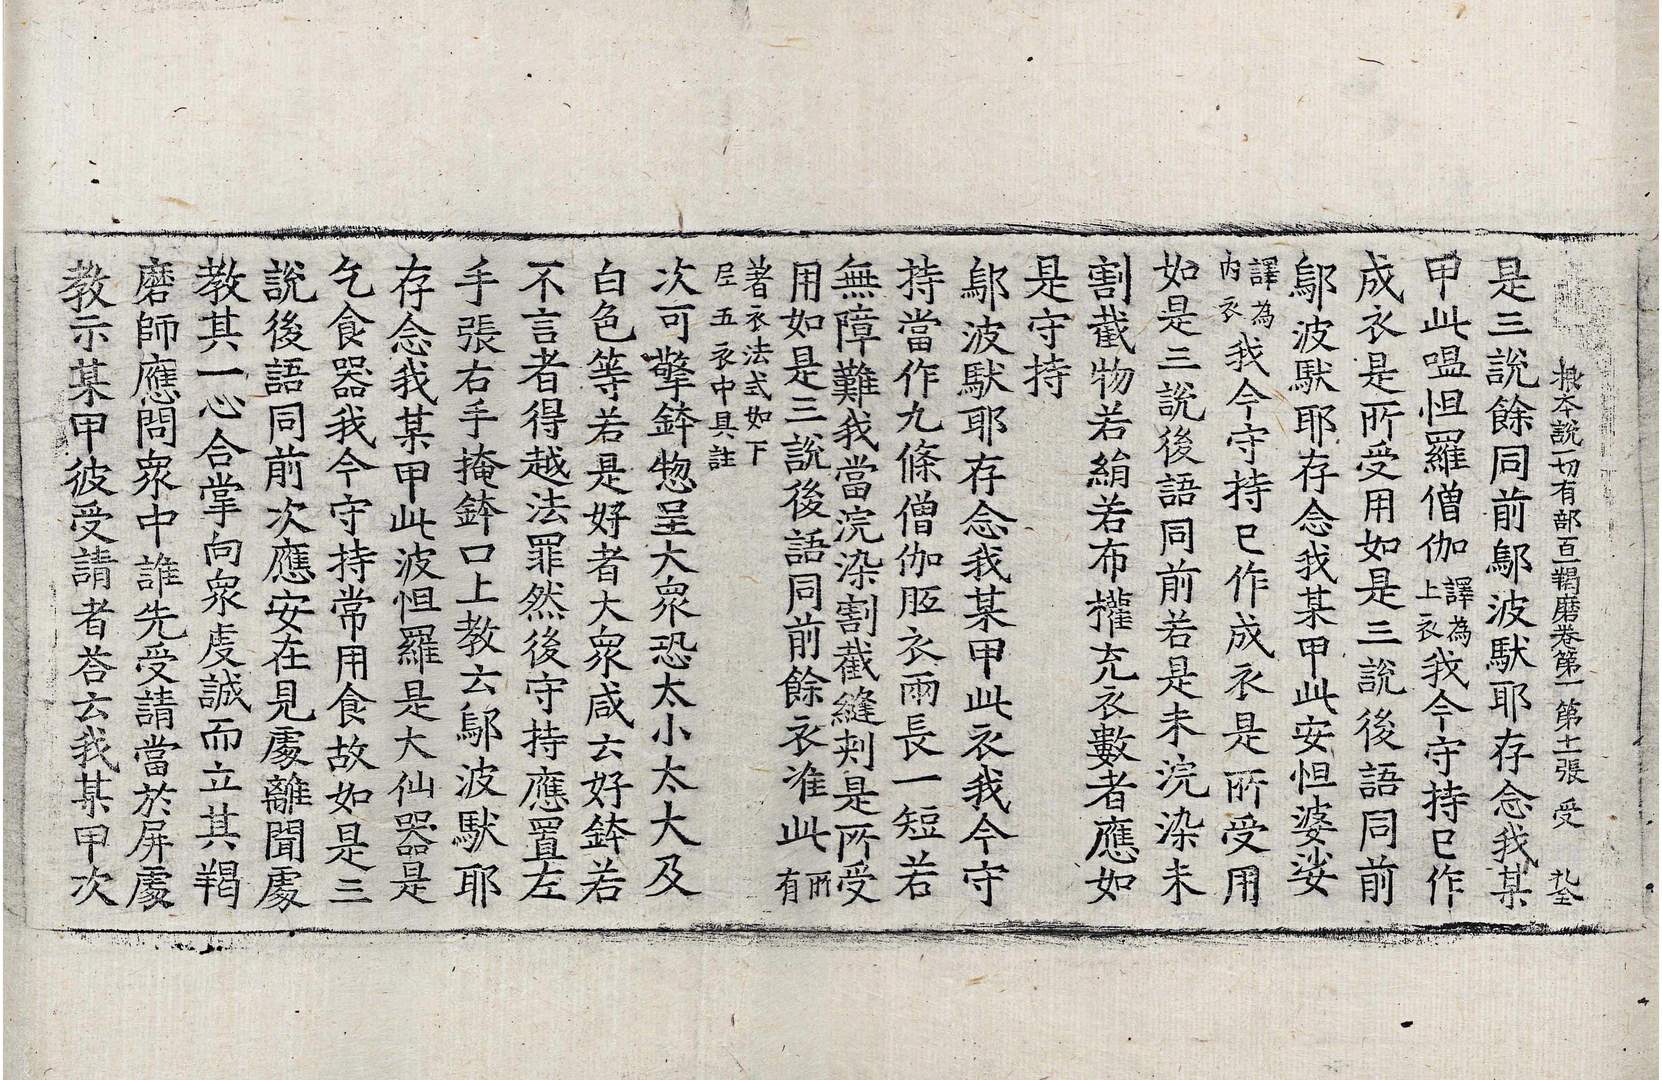 根本說一切有部百一羯磨卷第一 第十一張 受
是三說餘同前鄔波馱耶存念我某
甲此嗢怛羅僧伽譯為上衣我今守持已作
成衣是所受用如是三說後語同前
鄔波馱耶存念我某甲此安怛婆娑
譯為內衣我今守持已作成衣是所受用
如是三說後語同前若是未浣染未
割截物若絹若布權充衣數者應如
是守持
鄔波馱耶存念我某甲此衣我今守
持當作九條僧伽胝衣兩長一短若
無障難我當浣染割截縫刾是所受
用如是三說後語同前餘衣准此所有
著衣法式如下尼五衣中具註
次可擎鉢惣呈大眾恐太小太大及
白色等若是好者大眾咸云好鉢若
不言者得越法罪然後守持應置左
手張右手掩鉢口上教云鄔波馱耶
存念我某甲此波怛羅是大仙器是
乞食器我今守持常用食故如是三
說後語同前次應安在見處離聞處
教其一心合掌向眾虔誠而立其羯
磨師應問眾中誰先受請當於屏處
教示某甲彼受請者荅云我某甲次